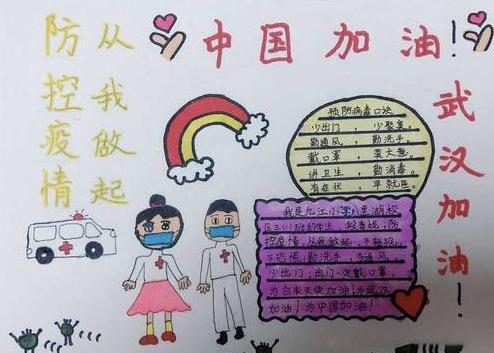 防控疫情
从我做起
中国加油!
武汉加油!
预防病毒口诀
少出门,少聚集,
勤通风,勤洗手,
戴口罩,莫大意。
讲卫生,勤消毒,
有症状,早就医。
我是九江小学八里湖校
区三(1)班的学生
防
控疫情,从我做起,不轻视
不恐慌,勤洗手,多通风
少出门,出门一定戴口罩,
为白衣天使加油!为武汉
加油!为中国加油!